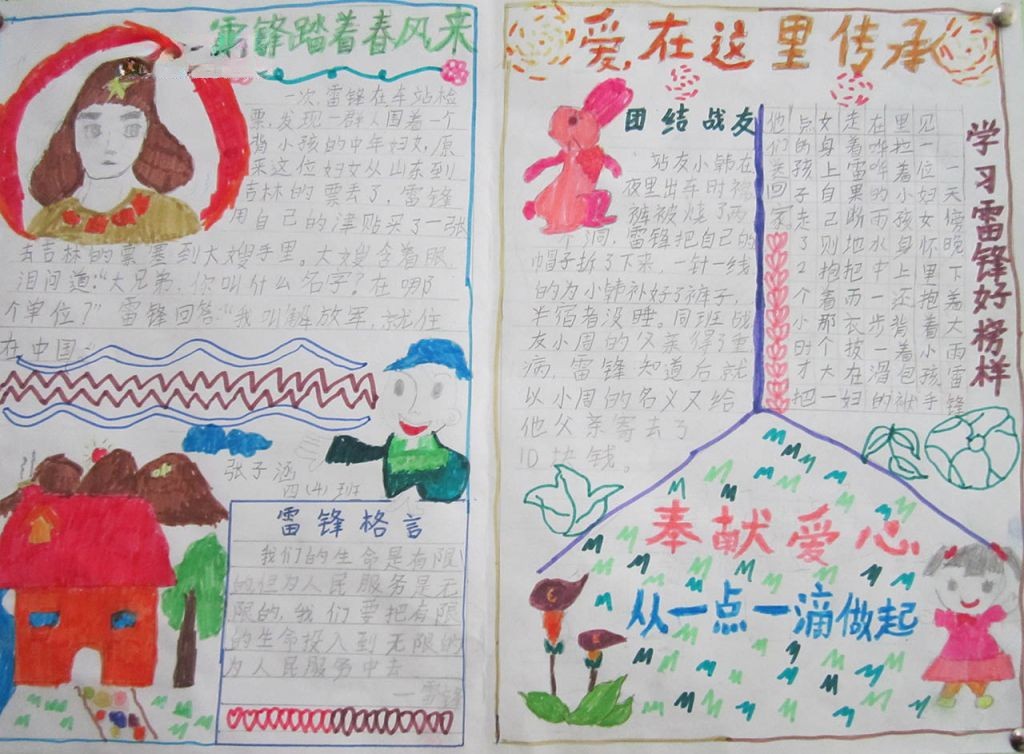 雷锋踏着春风来
一次,雷锋在车站检
票,发现一群人围着一个
背小孩的中年妇女,原
来这位妇女从山东到
吉林的票丢了,雷锋
用自己的津贴买了一张
去吉林的票塞到大嫂手里,大嫂含着眼
泪问道:“大兄弟,你叫什么名字?在哪
个单位?”雷锋回答“我叫解放军,就住
在中国。
张子涵
四(4)班
雷锋格言
我们的生命是有限
的但为人民服务是无
限的,我们要把有限
的生命投入到无限的
为人民服务中去
一雷锋
爱在这里传承
团结战友
站友小韩在
夜里出车时棉
裤被烧了两
个洞,雷锋把自己的
帽子拆了下来,一针一线
的为小韩补好了裤子,
半宿者没睡。同班战
友小周的父亲得了重
病,雷锋知道后就
以小周的名义又给
他父亲寄去了
10块钱。
学习雷锋好榜样
一天傍晚下着大雨雷锋
见一位妇女怀里抱着小孩手
里拉着小孩身上还背着包袱
在哗哗的雨水中一步一滑的
走着雷果断地把雨衣披在妇
女身上自己则抱着那个大一
点的孩子走了2个小时才把
他们送回家
奉献爱心
从一点一滴做起